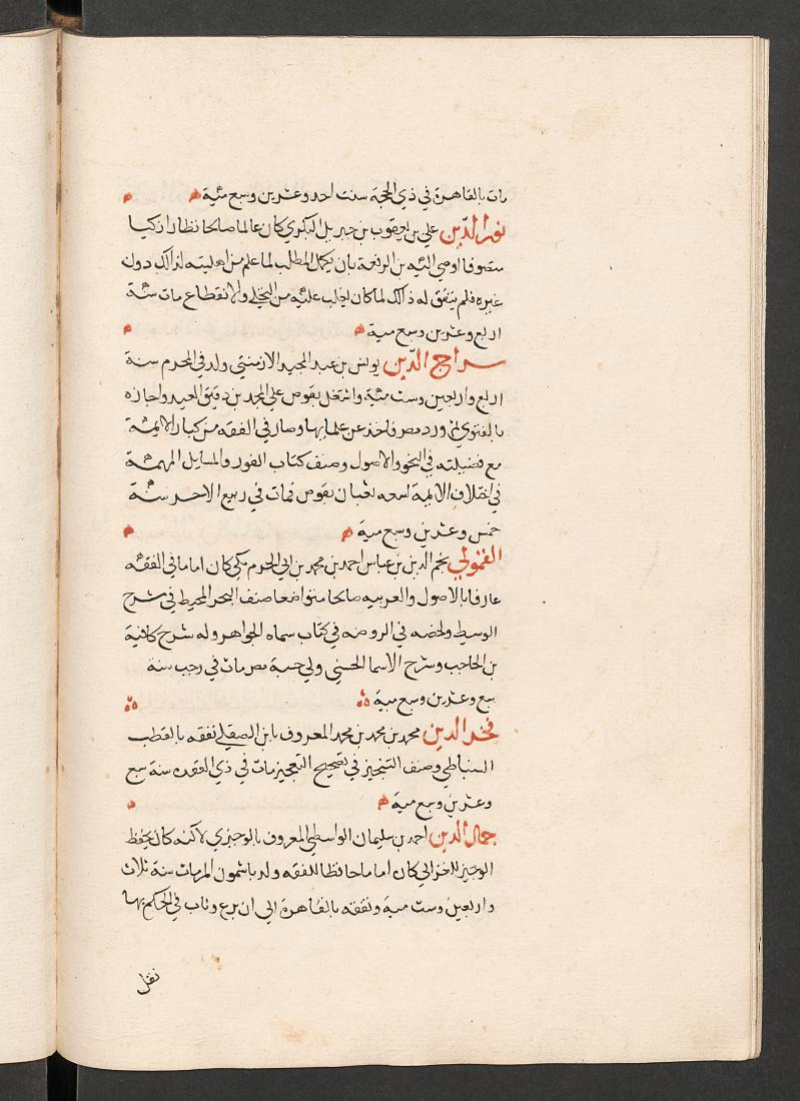 مات بالقاهرة في ذي الحجة سنت احد وعشرين وسبع مئية
نور الدين علي بن يعقوب بن جبريل البكري كان عالما صالحا نظارا زكيا
متصوفا اوصي اليه بن الرفعة بان يكمل المطلب لما علم من اهليته لذالك دون
غيره فلم يتفق له ذالك لما كان يغلب عليه من التخلي والانقطاع مات سنة
اربع وعشرين وسبع مية
سراج الدين يونس بن عبد المجيد الارمنتي ولد في المحرم سنة
اربع واربعين وست مئية واشتغل بقوص علي المجد بن دقيق العيد واجازه
بالفتوي ثم ورد مصر فاخذ عن علمايها وصار في الفقه من كبار الايمة
مع فضيلته في النحو والاصول وصنف كتاب الفور والمسايل المهمة
في اختلاف الايمة لسعه ثعبان بقوص فمات في ربيع الاخر سنة
خمس وعشرين وسبع مية
القمولي نجم الدين بن عباس احمد بن محمد بن ابي الحرم مكي كان اماما في الفقه
عارفا بالاصول والعربيه صالحا متواضعا صنف البحر المحيط في شرح
الوسيط ولخصه في الروضه في كتاب سماه الجواهر وله شرح كافية
بن الحاجب وشرح الاسما الحسني ولي حسبة مصر مات في رجب سنة
سبع وعشرين وسبع مية
فخر الدين محمد بن محمد بن محمد المعروف بابن الصقلي تفقه بالقطب
السنباطي وصنف التنجيز في تصحيح التعجيز مات في ذي القعدة سنة سبع
وعشرين وسبع مية
جمال الدين احمد بن سليمان الواسطي المعروف بالوجيزي لاكنه كان يحفظ
الوجيز للاغزالي كان اماما حافظا للفقه ولد باشمول الرمات سنة ثلاث
واربعين وست مية وتفقه بالقاهرة الي ان برع وناب في الحكم بها
نقل